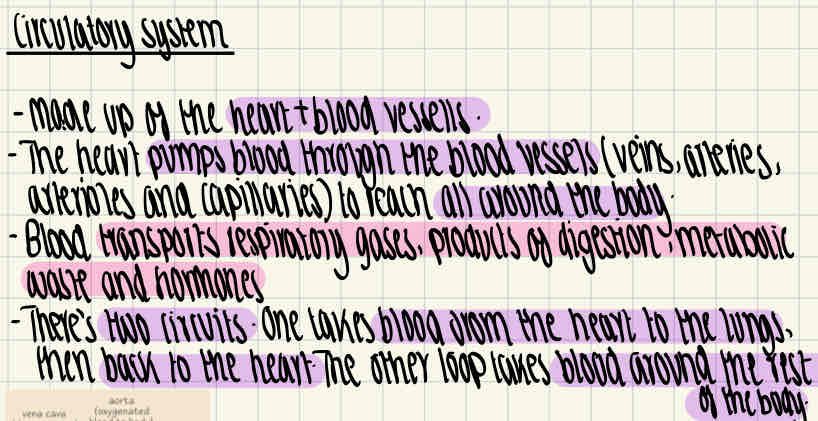 Circulatory system
- Made up of the heart + blood vessells.
- The heart pumps blood through the blood vessels (veins, arteries,
arterioles and capillaries) to reach all around the body.
- Blood transports respiratory gases, products of digestion, metabolic
waste and hormones
- There's two circuits. One takes blood from the heart to the lungs,
then back to the heart. The other loop takes blood around the rest
of the body.
aorta
vena cava (oxygenated